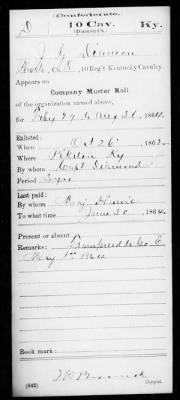 Confederate.
D 10 Cav. Ky.
(Diamond's.)
10 Reg't Kentucky Cavalry.
Appears on
Company Muster Roll
of the organization named above,
for 1864.
Enlisted:
When Oct 26, 1862.
Where Ky
By whom Capt Diamond
Period 3 yrs
Last paid:
By whom Maj
To what time June 30, 1864.
Present or absent
Remarks: Transferred to Co. E
May 1st 1864
Book mark:
(642) Copyist.